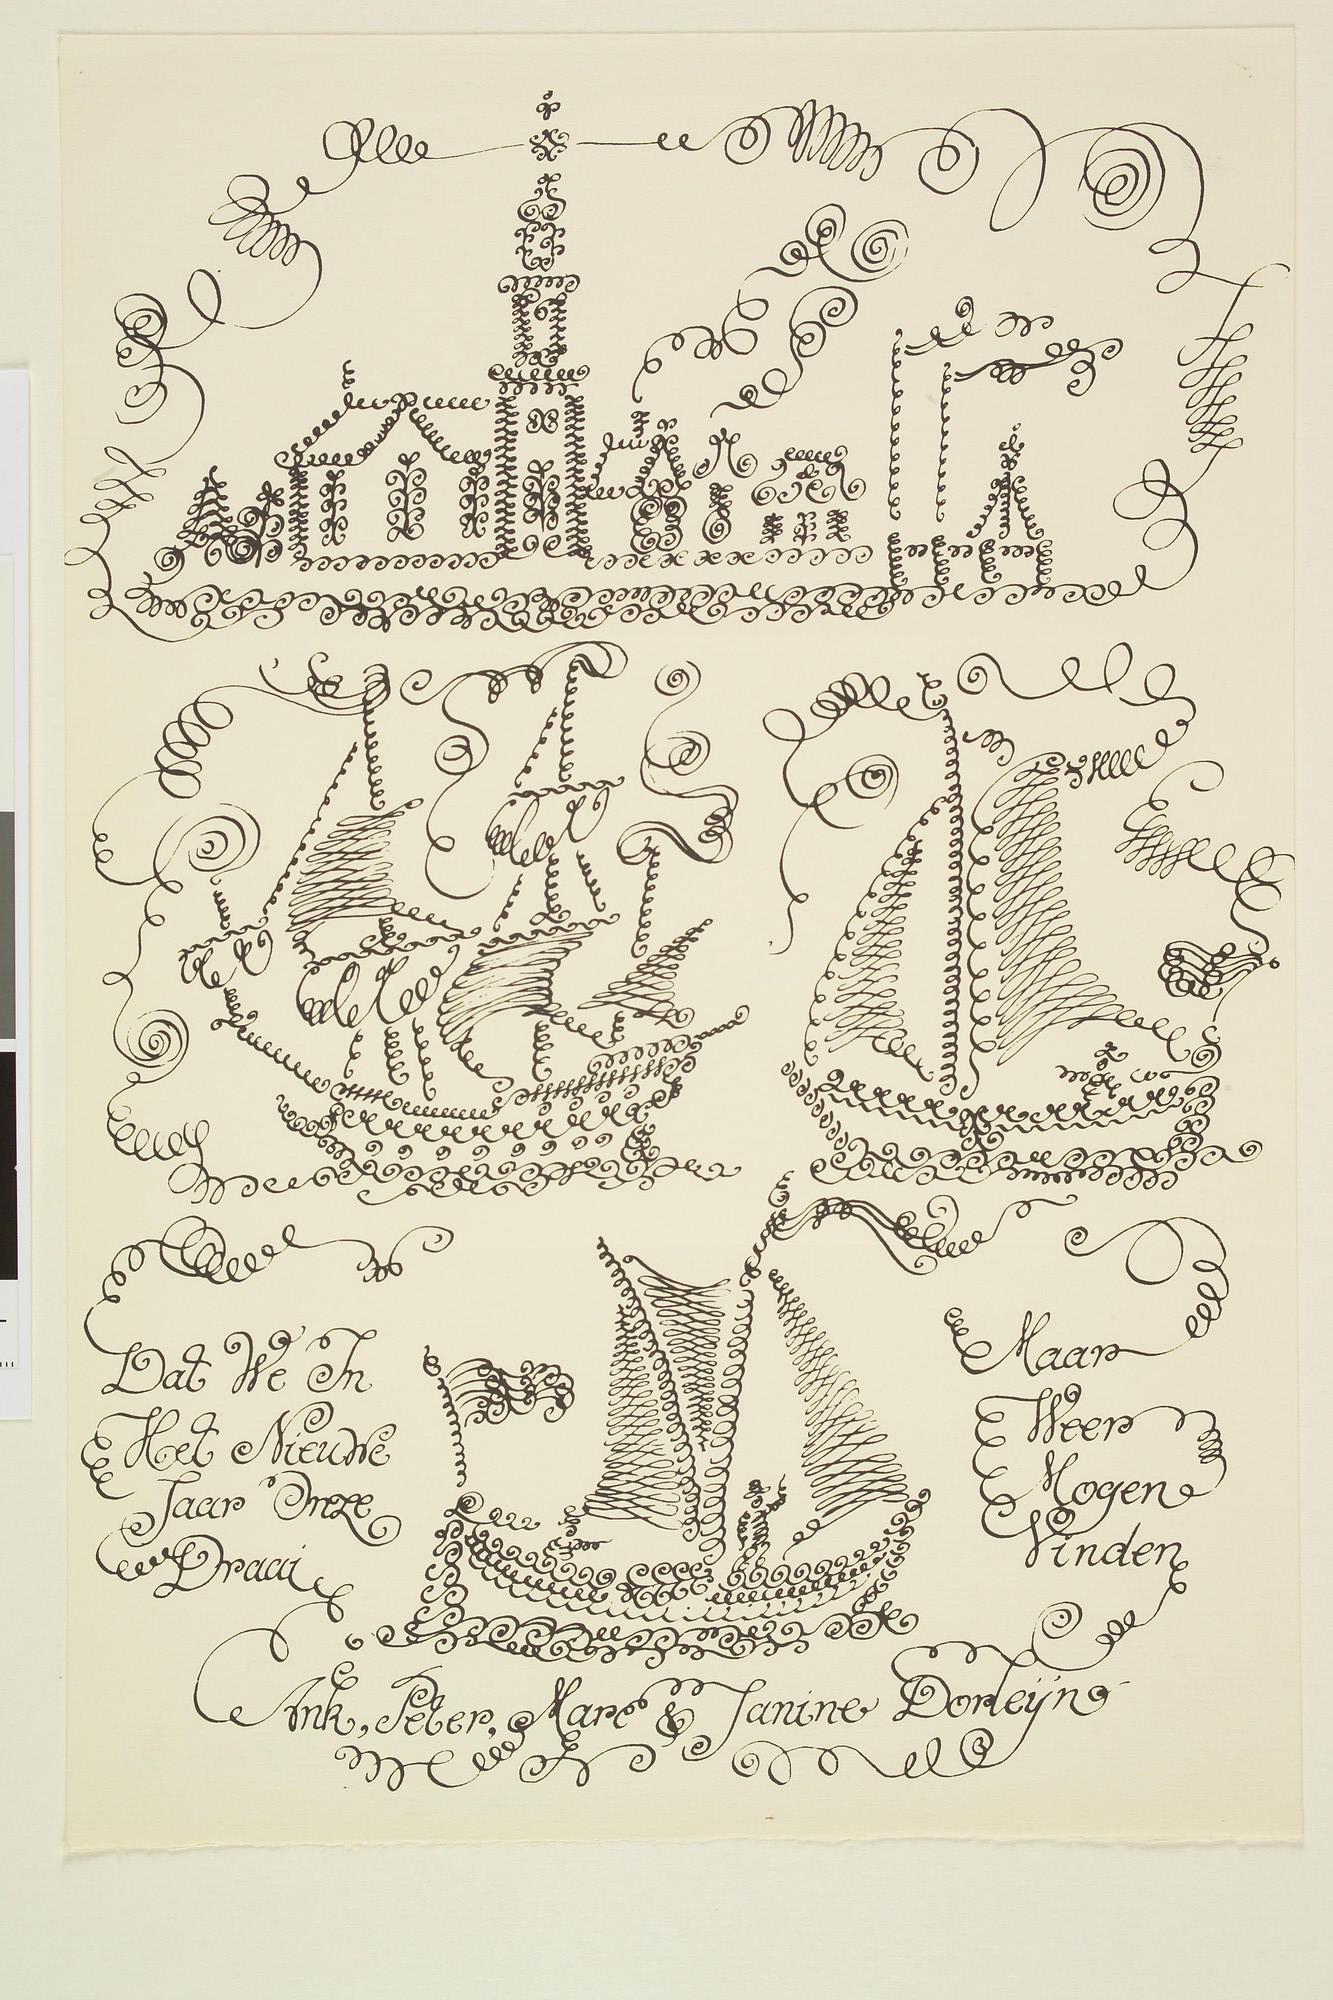 Dat We In
Het Nieuwe
Jaar Onze
Draai
Maar
Weer
Mogen
Vinden
Ank, Peter, Marc & Janine Dorleijn